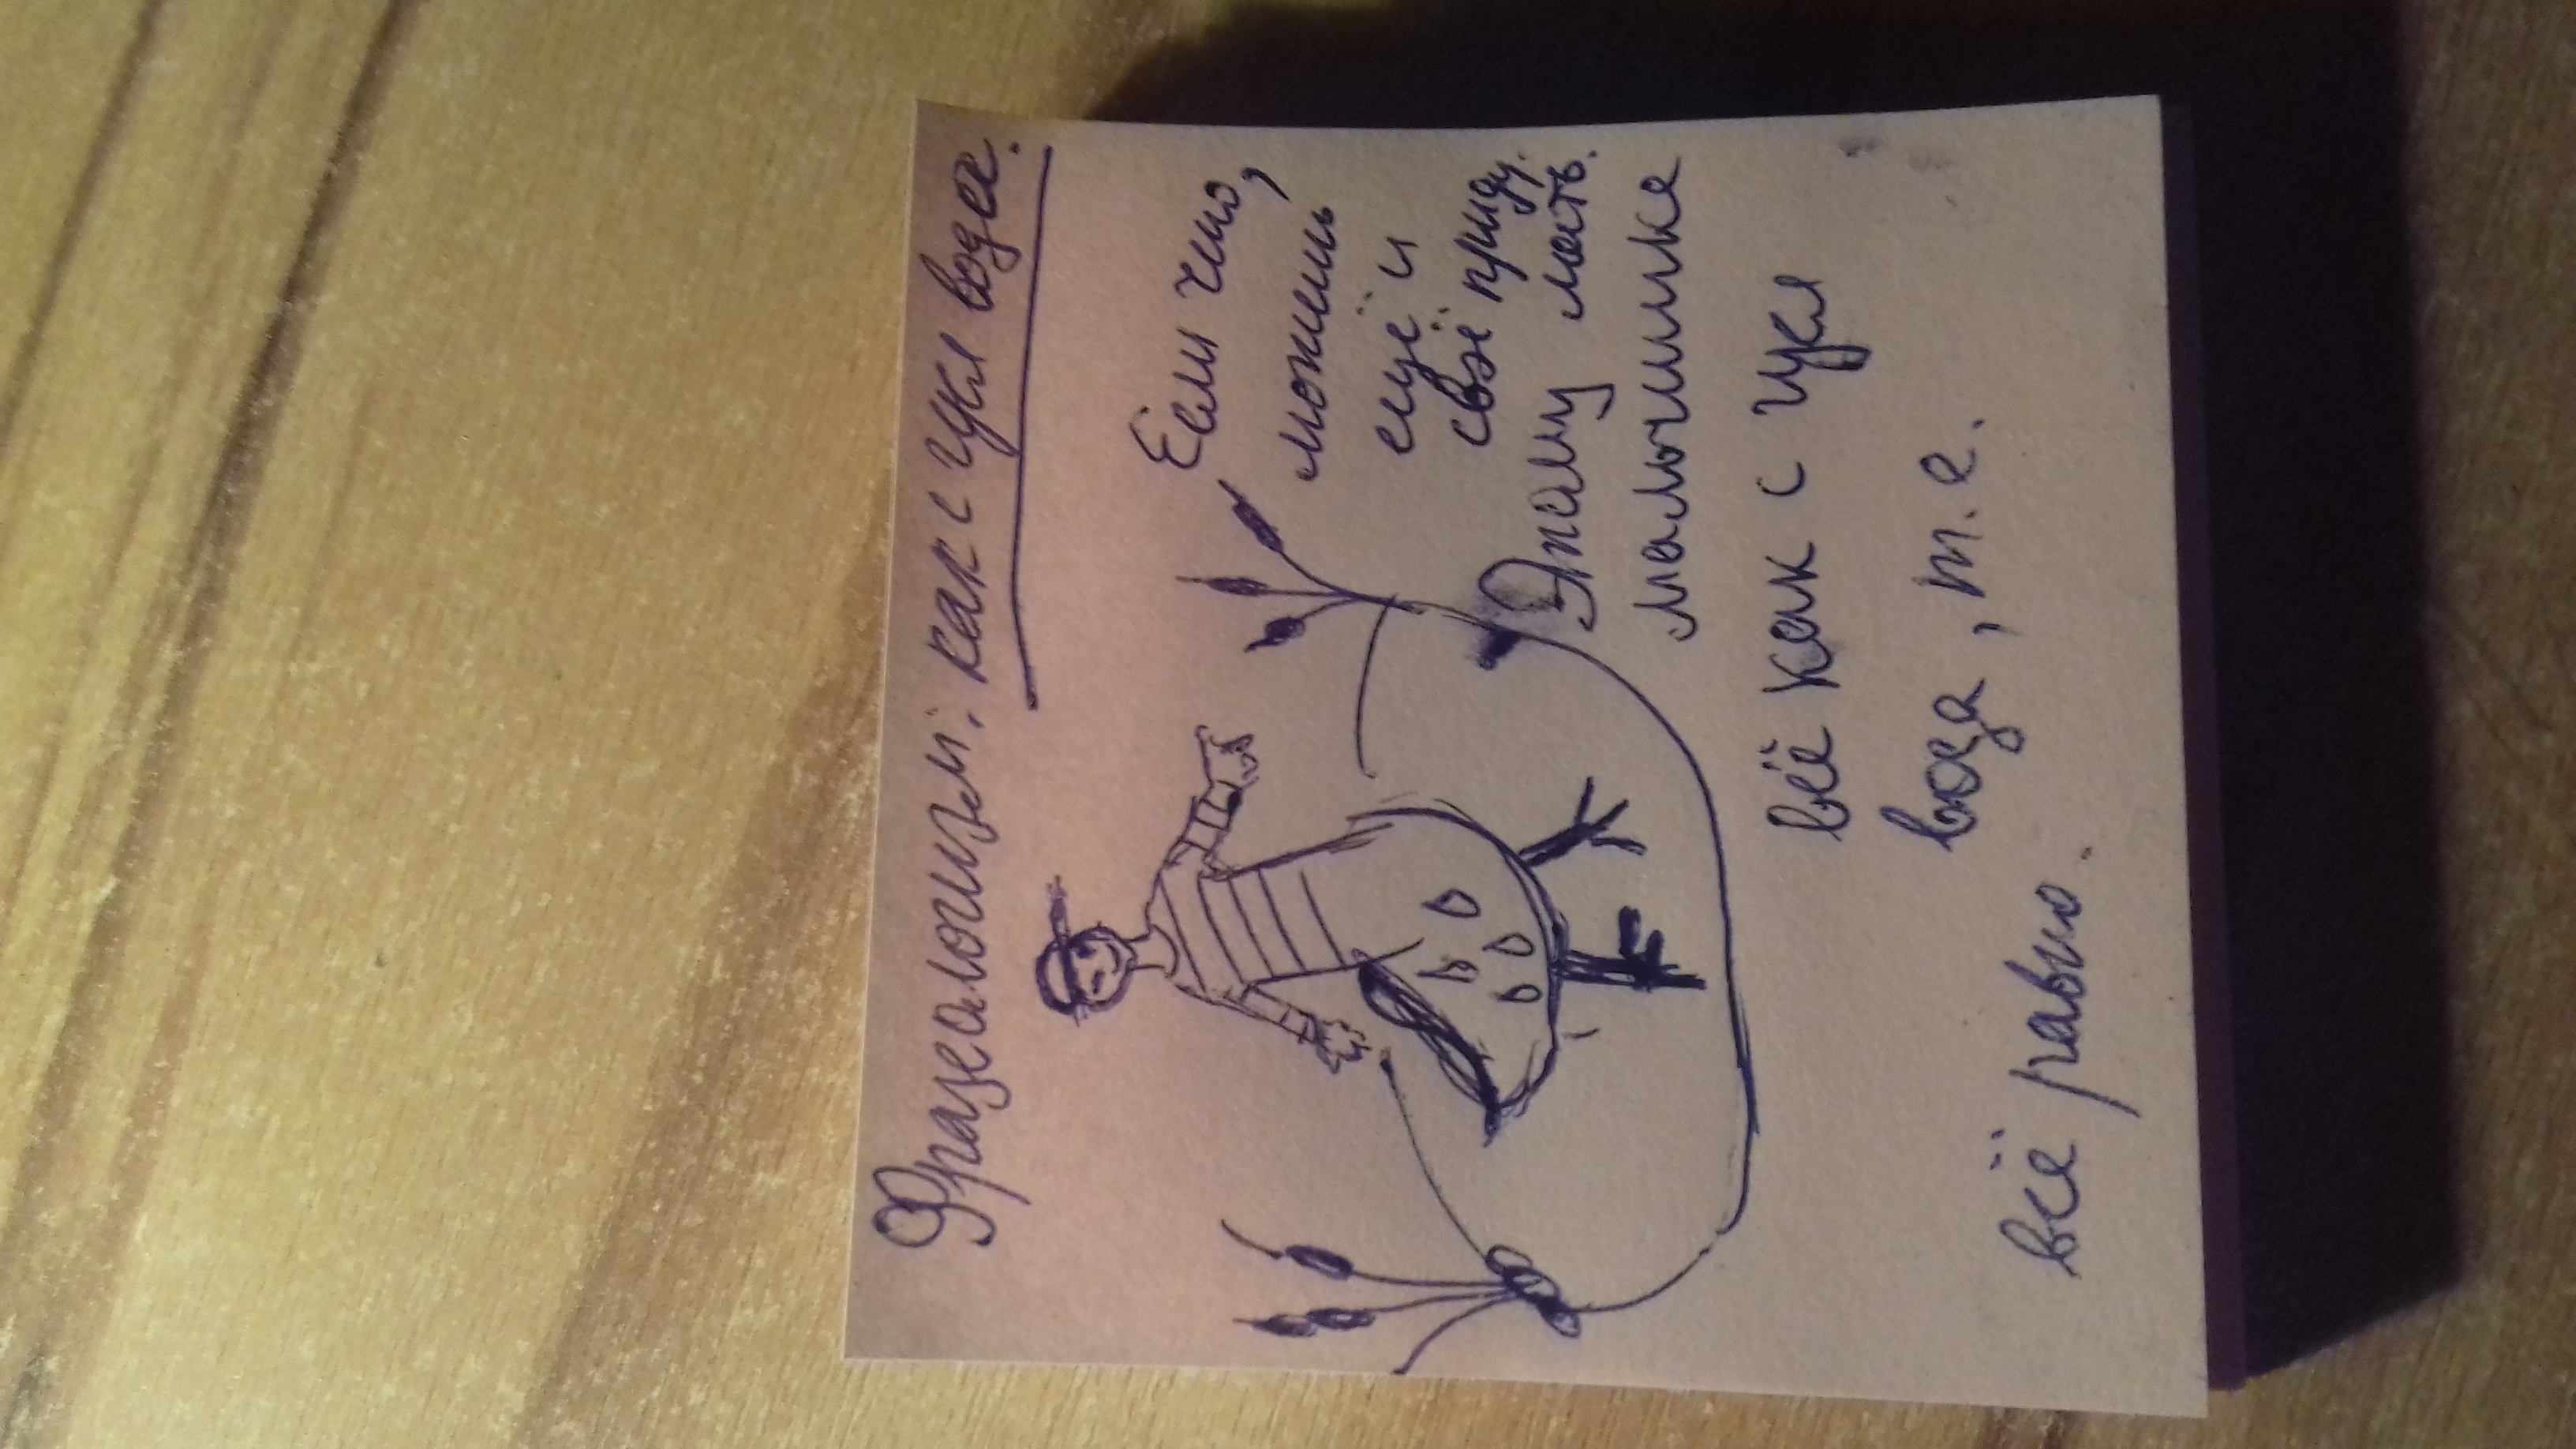 Фразеологизм: как с гуся вода.
Если что,
можешь
ещё и
своё приду-
мать.
Этому
мальчишке
всё как с гуся
вода, т.е.
всё равно.